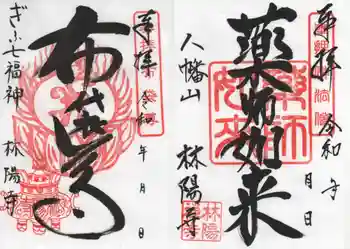 奉拝
令和 年 月 日
布袋尊
ぎふ七福神
林陽寺
奉拝
令和 年 月 日
薬師如来
八幡山
林陽寺